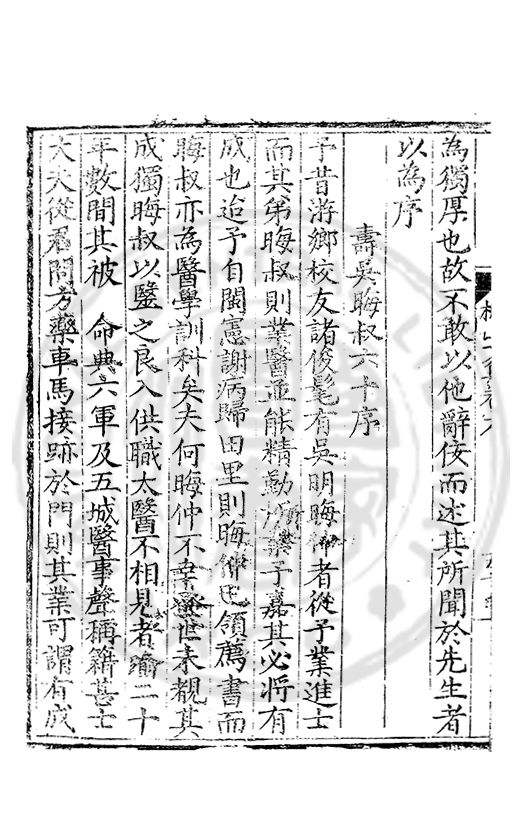 為獨厚也故不敢以他辭侫而述其所聞於先生者
以為序
壽吳晦叔六十序
予昔游鄉校友諸俊髦有吳明晦仲者從予業進士
而其弟晦叔則業醫並能精勤所業予嘉其必將有
成也迨予自閩憲謝病歸田里則晦仲已領薦書而
晦叔亦為醫學訓科矣夫何晦仲不幸蚤世未覩其
成獨晦叔以醫之良入供職太醫不相見者踰二十
年數間其被 命典六軍及五城醫事聲稱籍甚士
大夫從君問方藥車馬接跡於門則其業可謂有成